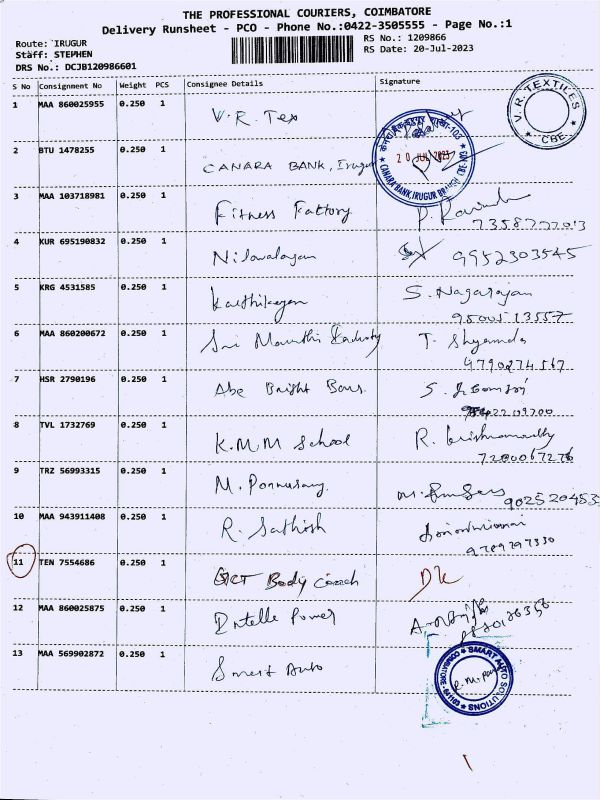 THE PROFESSIONAL COURIERS, COIMBATORE
Delivery Runsheet - PCO - Phone No.:0422-3505555 - Page No.:1
Route: IRUGUR
Staff: STEPHEN
DRS No.: DCJB120986601
RS No.: 1209866
RS Date: 20-Jul-2023
S No Consignment No Weight PCS Consignee Details Signature
1 MAA 860025955 0.250 1 V.R. Tex
V.R. TEXTILES CBE
2 BTU 1478255 0.250 1 CANARA BANK, Irugur
20 JUL 2023
CANARA BANK, IRUGUR BRANCH
3 MAA 103718981 0.250 1 Fitness Factory
4 KUR 695190832 0.250 1 Nilavalagan 9952303545
5 KRG 4531585 0.250 1 Karthikeyan S. Nagarajan
6 MAA 860200672 0.250 1 Sri T. Shyamala
9790274567
7 HSR 2790196 0.250 1 Abe Bright Bars
8 TVL 1732769 0.250 1 K.M.M School R.
7200067276
9 TRZ 56993315 0.250 1 M. Ponnusamy
902520453
10 MAA 943911408 0.250 1 R. Sathish
9789797330
11 TEN 7554686 0.250 1 Body Coach
12 MAA 860025875 0.250 1 Intelle Power
13 MAA 569902872 0.250 1 Smart Auto
SMART AUTO SOLUTIONS COIMBATORE - 641103